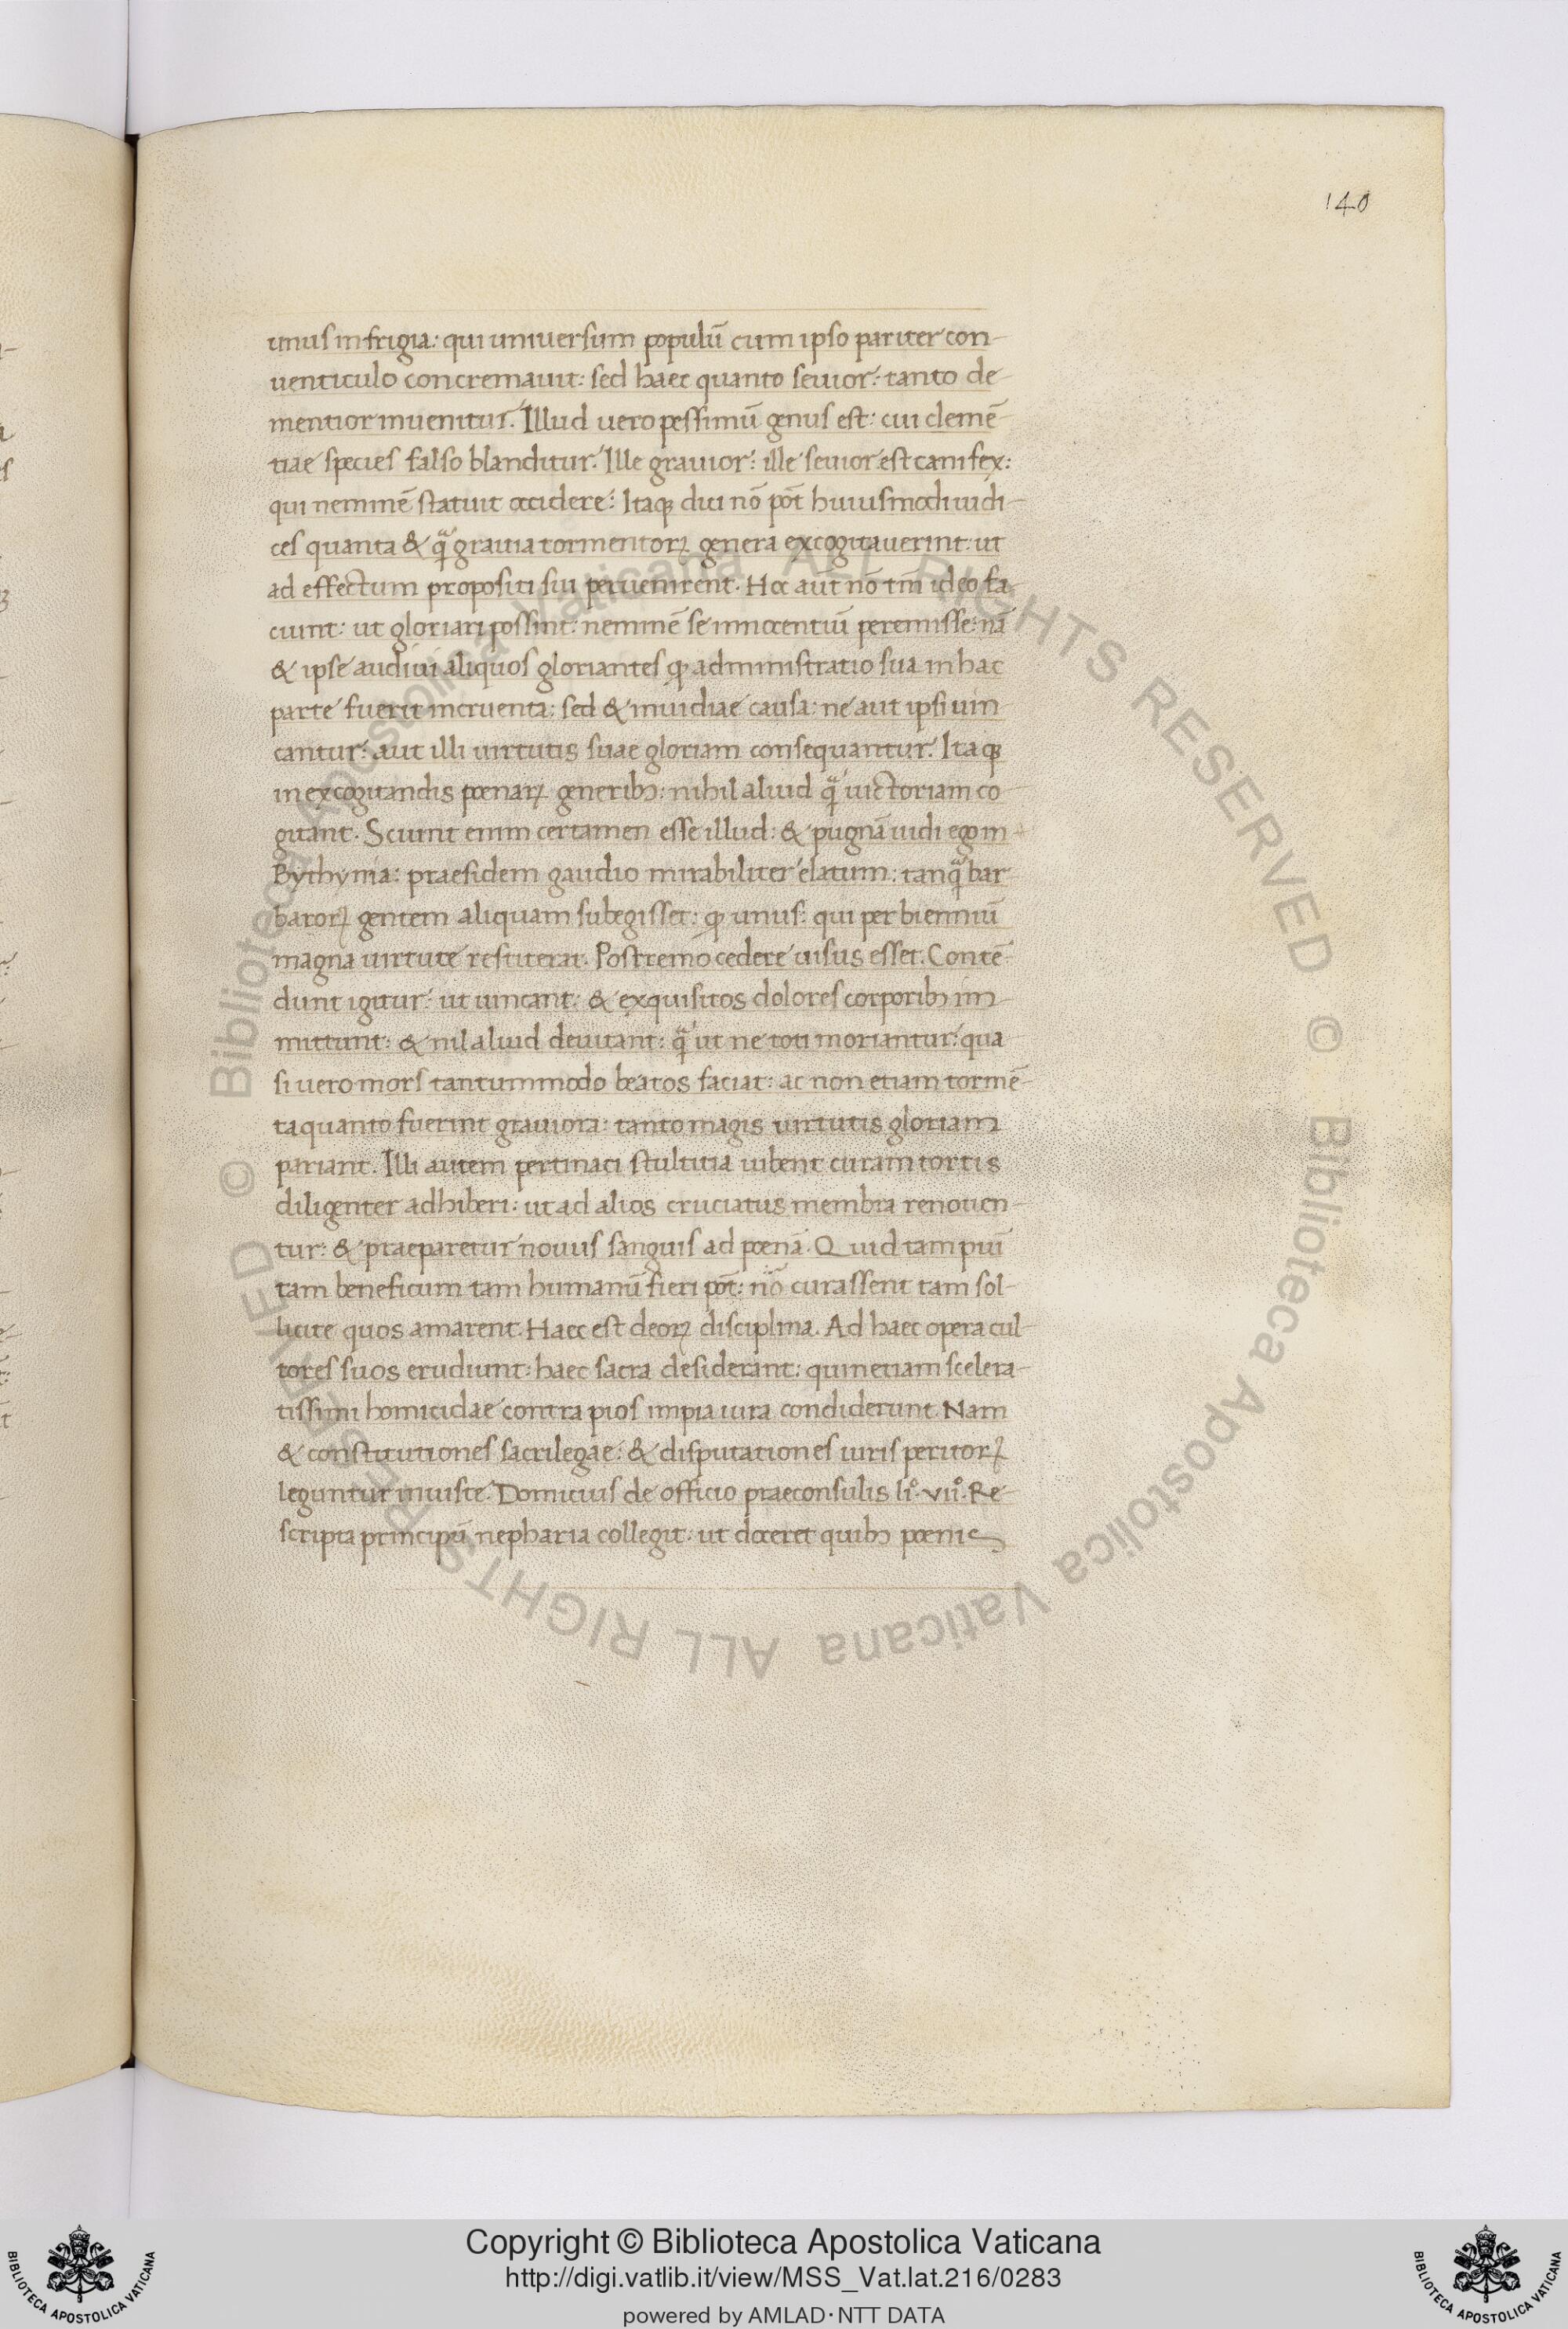 140
unus in frigia: qui universum populū cum ipso pariter con-
uenticulo concremauit: sed haec quanto seuior: tanto de-
mentior inuenitur. Illud uero pessimū genus est: cui clemē-
tiae species falso blanditur. Ille grauior: ille seuior est carnifex:
qui neminē statuit occidere: Itaqꝫ dici nō pōt huiusmodi iudi-
ces quanta & q̃ grauia tormentoꝝ genera excogitauerint: ut
ad effectum propositi sui peruenirent. Hoc aūt nō tm̄ ideo fa-
ciunt: ut gloriari possint: neminē se innocentiū peremisse: nā
& ipse audiui aliquos gloriantes ꝙ administratio sua in hac
parte fuerit incruenta: sed & inuidiae causa: ne aut ipsi uin-
cantur: aut illi uirtutis suae gloriam consequantur. Itaqꝫ
in excogitandis poenaꝝ generibꝫ: nihil aliud q̃ uictoriam co-
gitant. Sciunt enim certamen esse illud: & pugnā uidi ego in
Bythynia: praesidem gaudio mirabiliter elatum: tanq̃ bar-
baroꝝ gentem aliquam subegisset: ꝙ unus: qui per bienniū
magna uirtute restiterat. Postremo cedere uisus esset. Contē-
dunt igitur: ut uincant: & exquisitos dolores corporibꝫ im-
mittunt: & nil aliud deuitant: q̃ ut ne toti moriantur: qua
si uero mors tantummodo beatos faciat: ac non etiam tormē-
ta quanto fuerint grauiora: tanto magis uirtutis gloriam
pariant. Illi autem pertinaci stultitia iubent curam tortis
diligenter adhiberi: ut ad alios cruciatus membra renouen-
tur: & praeparetur nouus sanguis ad poenā. Quid tam piū
tam beneficum tam humanū fieri pōt: nō curassent tam sol-
licite quos amarent. Haec est deoꝝ disciplina. Ad haec opera cul-
tores suos erudiunt: haec sacra desiderant: quin etiam scelera-
tissimi homicidae contra pios impia iura condiderunt. Nam
& constitutiones sacrilegae: & disputationes iuris peritoꝝ
leguntur iniuste. Domicius de officio praeconsulis li°. vii°. Re-
scripta principū nepharia collegit: ut doceret quibꝫ poenis
Copyright © Biblioteca Apostolica Vaticana
http://digi.vatlib.it/view/MSS_Vat.lat.216/0283
powered by AMLAD·NTT DATA
BIBLIOTECA APOSTOLICA VATICANA
BIBLIOTECA APOSTOLICA VATICANA
© Biblioteca Apostolica Vaticana ALL RIGHTS RESERVED © Biblioteca Apostolica Vaticana ALL RIGHTS RESERVED